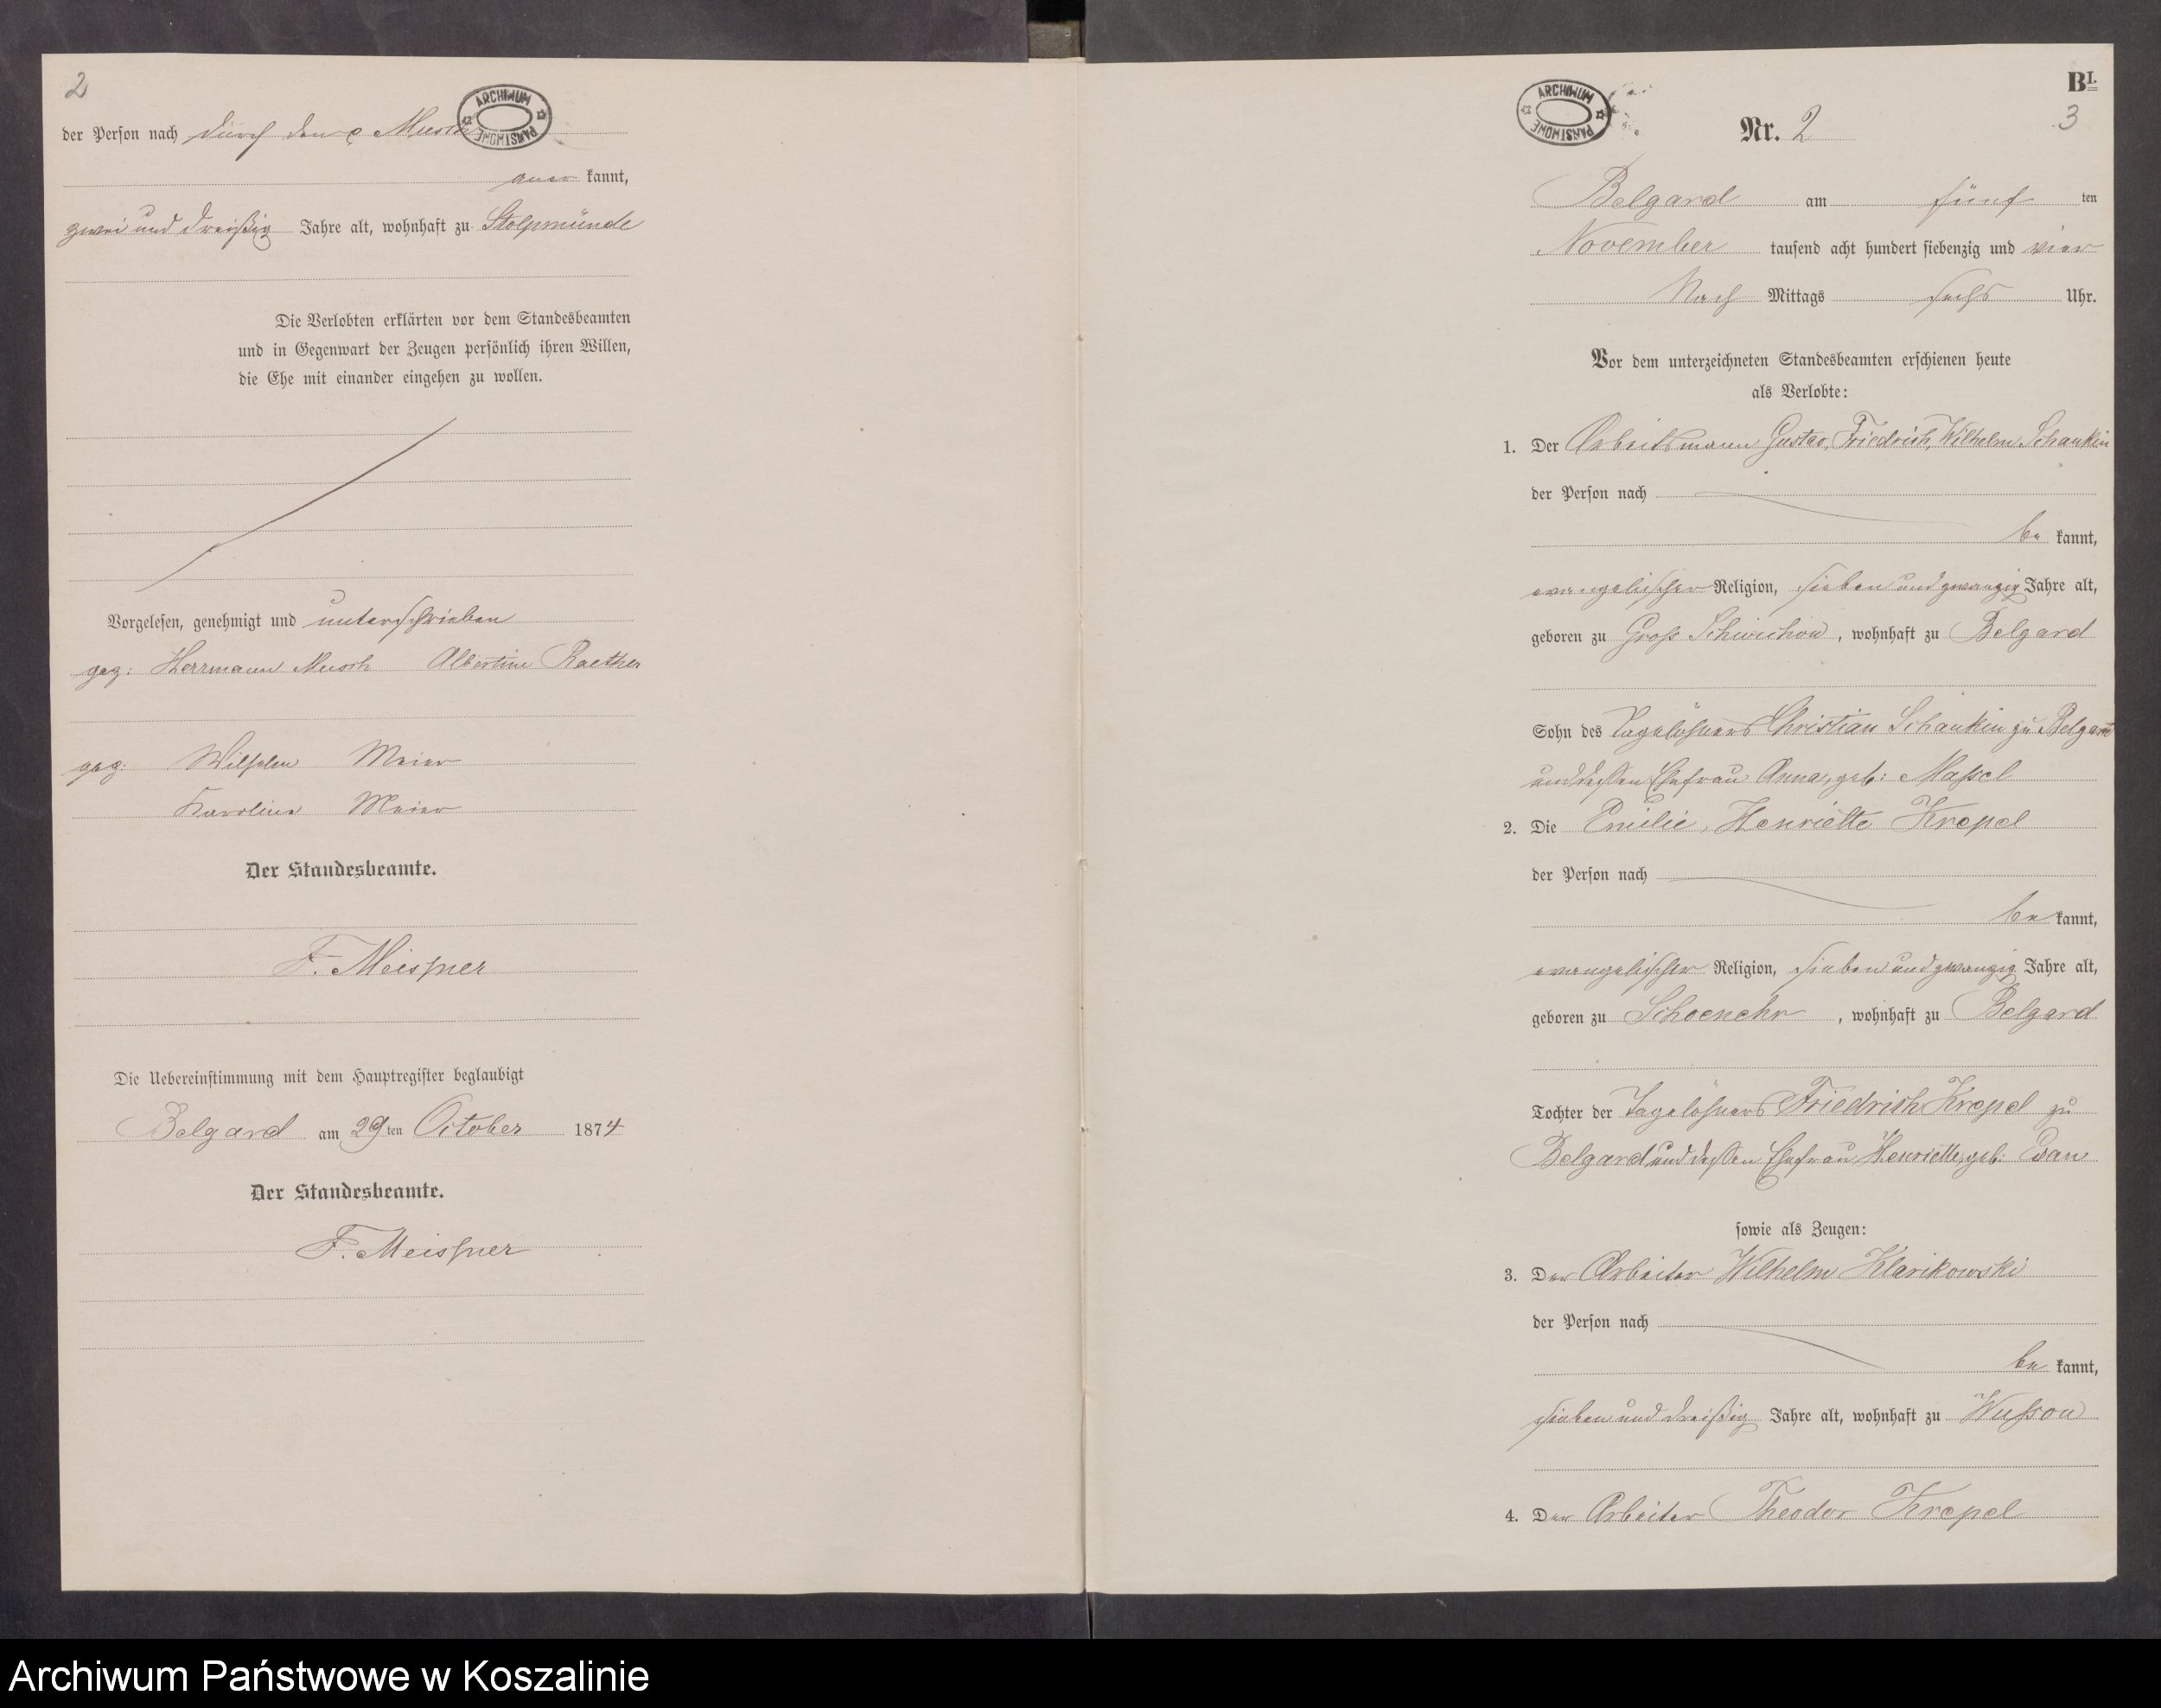 2
ARCHIWUM PAŃSTWOWE
der Person nach durch den p Musch
aner kannt,
zwei und dreißig Jahre alt, wohnhaft zu Stolpmünde
Die Verlobten erklärten vor dem Standesbeamten
und in Gegenwart der Zeugen persönlich ihren Willen,
die Ehe mit einander eingehen zu wollen.
Vorgelesen, genehmigt und unterschrieben
gez: Herrmann Musch Albertine Raether
gez: Wilhelm Meier
Karoline Meier
Der Standesbeamte.
F. Meissner
Die Uebereinstimmung mit dem Hauptregister beglaubigt
Belgard am 29ten October 1874
Der Standesbeamte.
F. Meissner
ARCHIWUM PAŃSTWOWE
BI.
Nr. 2
3
Belgard am fünf ten
November tausend acht hundert siebenzig und vier
Nach Mittags sechs Uhr.
Vor dem unterzeichneten Standesbeamten erschienen heute
als Verlobte:
1. Der Arbeitsmann Gustav, Friedrich, Wilhelm Schankin
der Person nach
be kannt,
evangelischer Religion, sieben und zwanzig Jahre alt,
geboren zu Gross Schwichow, wohnhaft zu Belgard
Sohn des Tagelöhners Christian Schankin zu Belgard
und dessen Ehefrau Anna, geb: Massel
2. Die Emilie, Henriette Krepel
der Person nach
be kannt,
evangelischer Religion, sieben und zwanzig Jahre alt,
geboren zu Schoenehr, wohnhaft zu Belgard
Tochter der Tagelöhners Friedrich Krepel zu
Belgard und dessen Ehefrau Henriette, geb:
sowie als Zeugen:
3. Der Arbeiter Wilhelm Klarikowski
der Person nach
be kannt,
sieben und dreißig Jahre alt, wohnhaft zu Wussow
4. Der Arbeiter Theodor Krepel
Archiwum Państwowe w Koszalinie